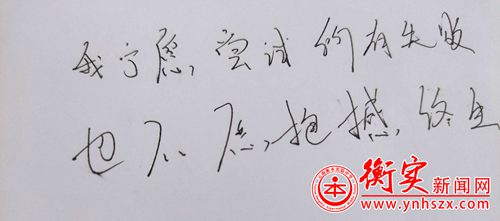 我宁愿尝试的有失败
也不愿抱撼终生
衡实新闻网
www.ynhszx.com